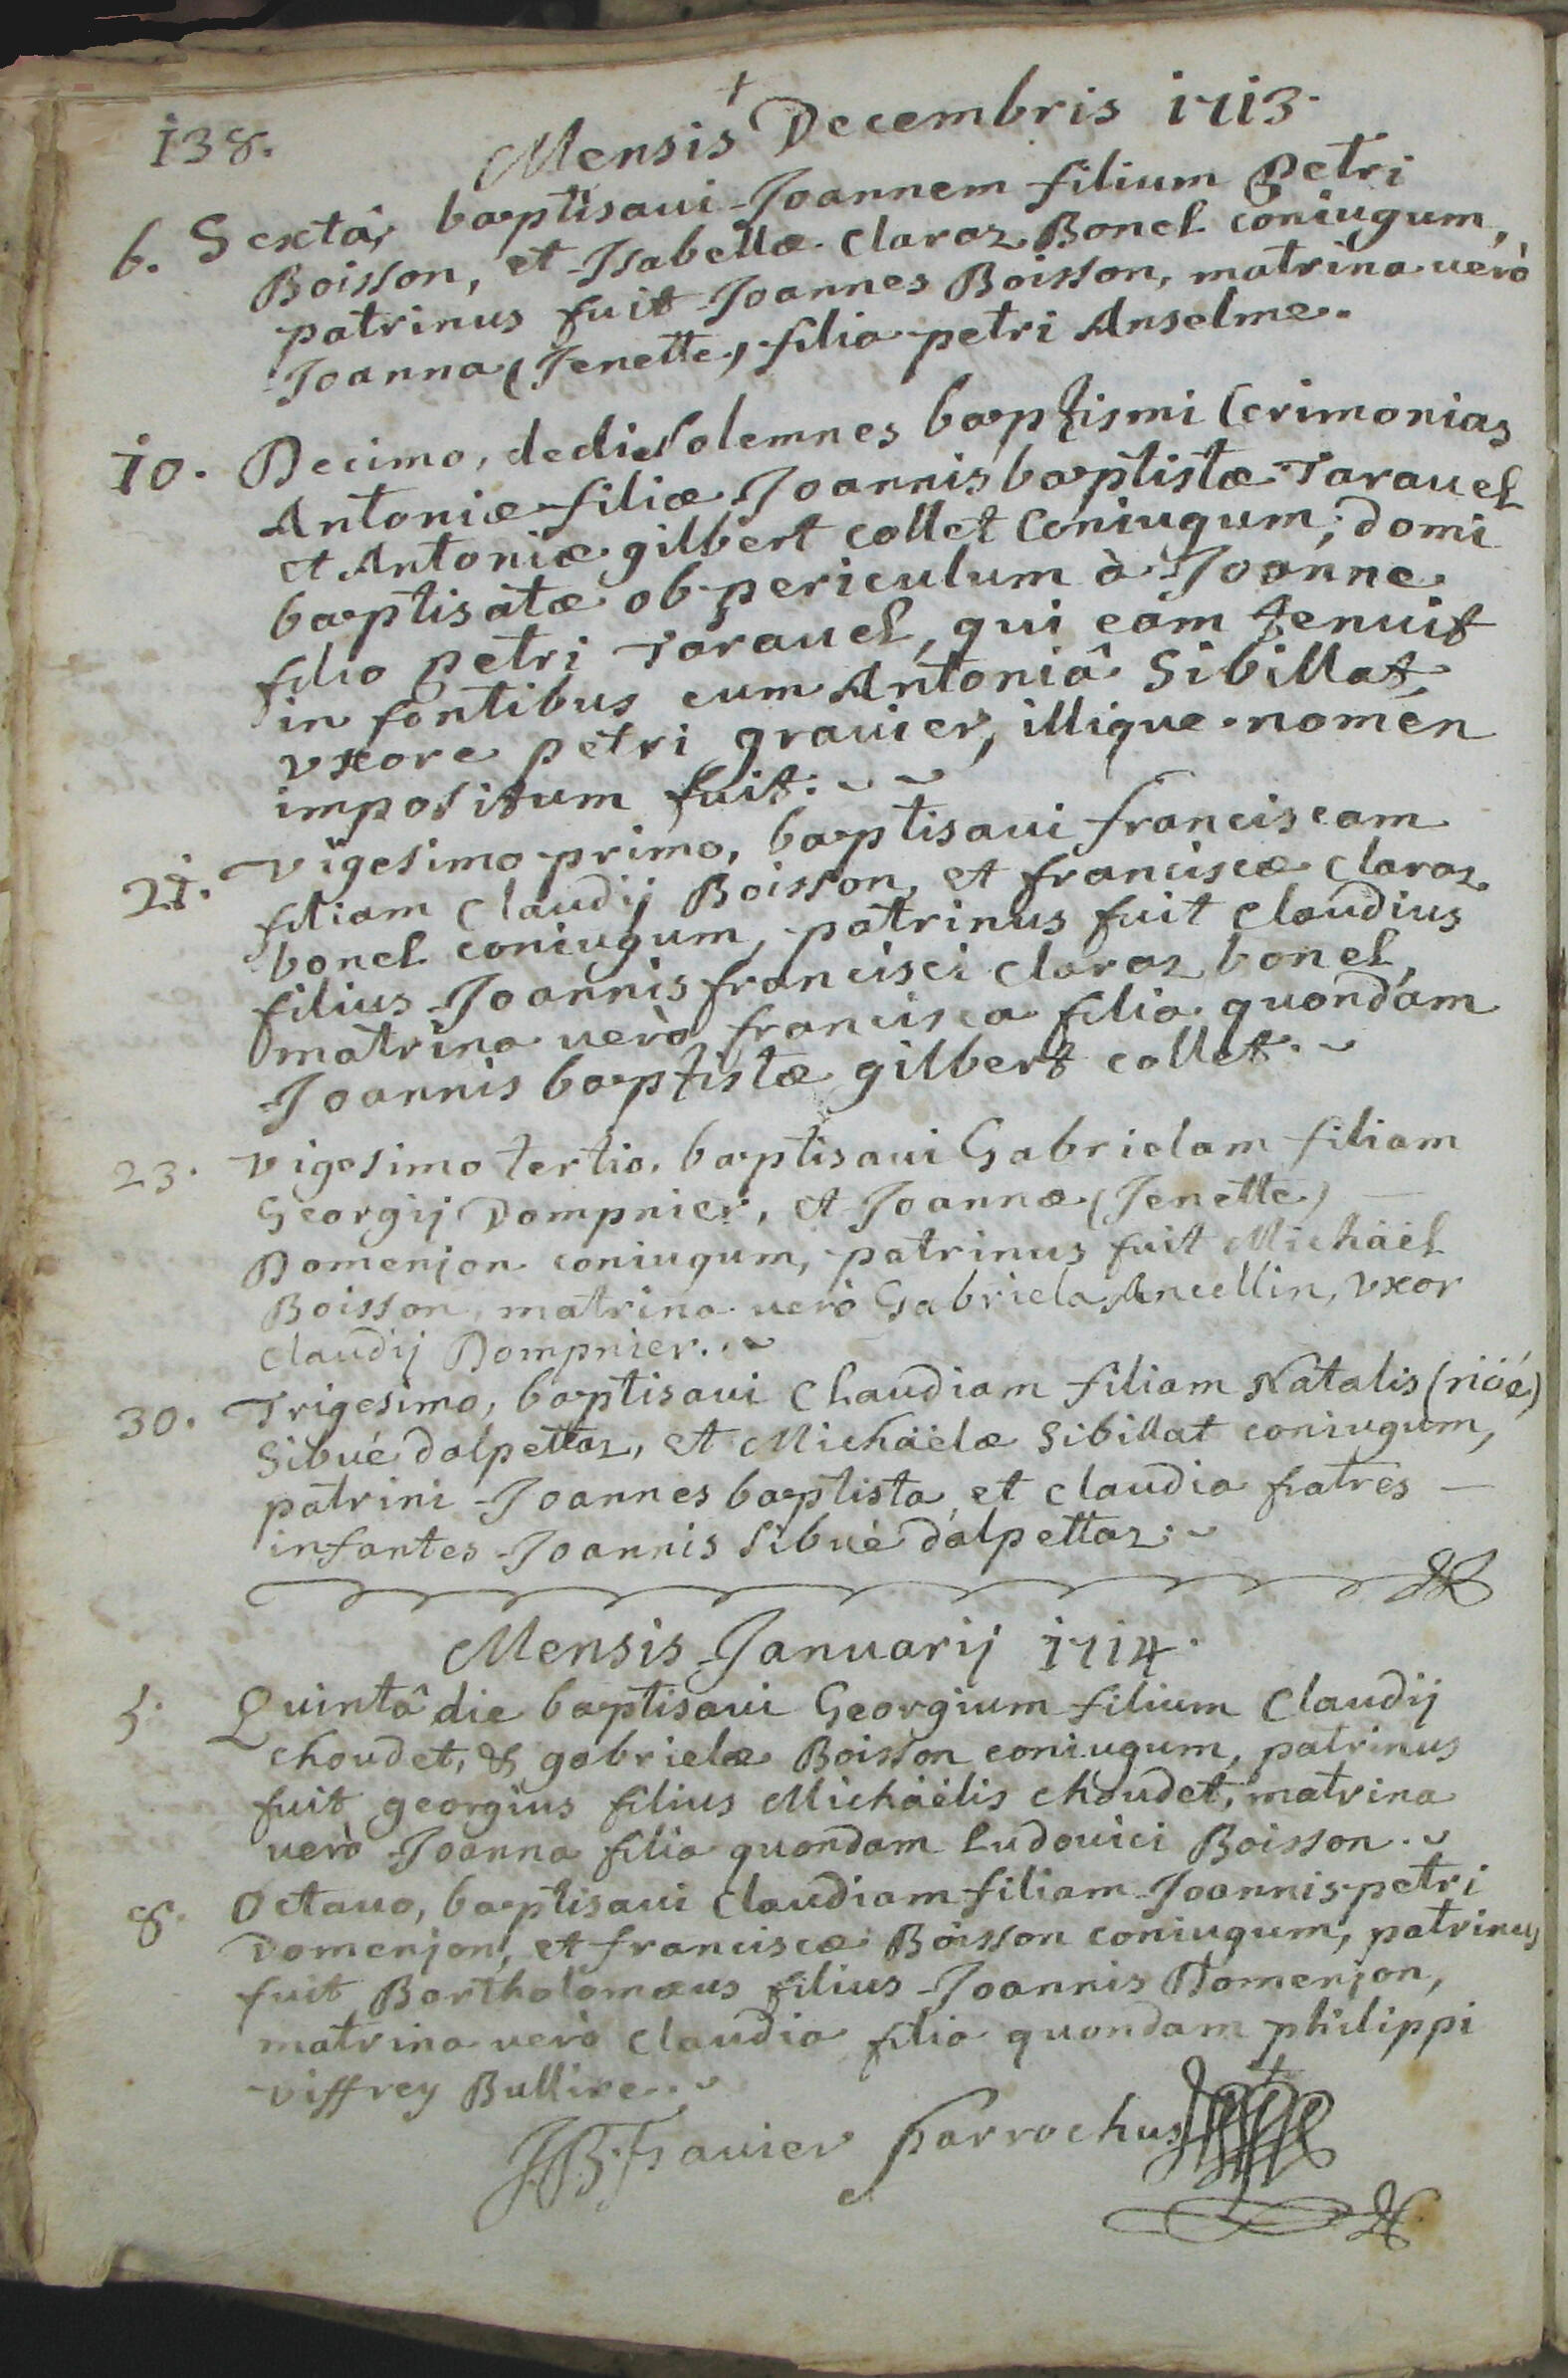 138.
Mensis Decembris 1713.
6. Sextâ, baptisaui Joannem filium Petri
Boisson, et Isabellæ Claraz Bonel coniugum,
patrinus fuit Joannes Boisson, matrina uerò
Joanna (Jenette) filia petri Anselme.
10. Decimo, dedi solemnes baptismi Cerimonias
Antoniæ filiæ Joannis baptistæ Tarauel
et Antoniæ gilbert collet Coniugum, domi
baptisatæ ob periculum à Joanne
filio Petri Tarauel, qui eam tenuit
in fontibus cum Antoniâ Sibillat,
vxore petri grauier, illique nomen
impositum fuit.
21. Vigesimo primo, baptisaui franciscam
filiam Claudij Boisson, et franciscæ Claraz
bonel coniugum, patrinus fuit Claudius
filius Joannis francisci Claraz bonel,
matrina uerò francisca filia quondam
Joannis baptistæ gilbert collet.
23. Vigesimo tertio, baptisaui Gabrielam filiam
Georgij Dompnier, et Joannæ (Jenette)
Domenjon coniugum, patrinus fuit Michäel
Boisson, matrina uerò Gabriela Ancellin, Vxor
Claudij Dompnier.
30. Trigesimo, baptisaui Claudiam filiam Natalis (nöé)
Sibué dalpettaz, et Michäelæ Sibillat coniugum,
patrini Joannes baptista et claudia fratres
infantes Joannis Sibué dalpettaz.
Mensis Januarij 1714.
5. Quintâ die baptisaui Georgium filium Claudij
choudet, & gabrielæ Boisson coniugum, patrinus
fuit georgius filius Michäelis choudet, matrina
uerò Joanna filia quondam Ludouici Boisson.
8. Octauo, baptisaui Claudiam filiam Joannis petri
Domenjon, et franciscæ Boisson coniugum, patrinus
fuit Bartholomæus filius Joannis Domenjon,
matrina uerò Claudia filia quondam philippi
Viffrey Bullire.
Parrochus